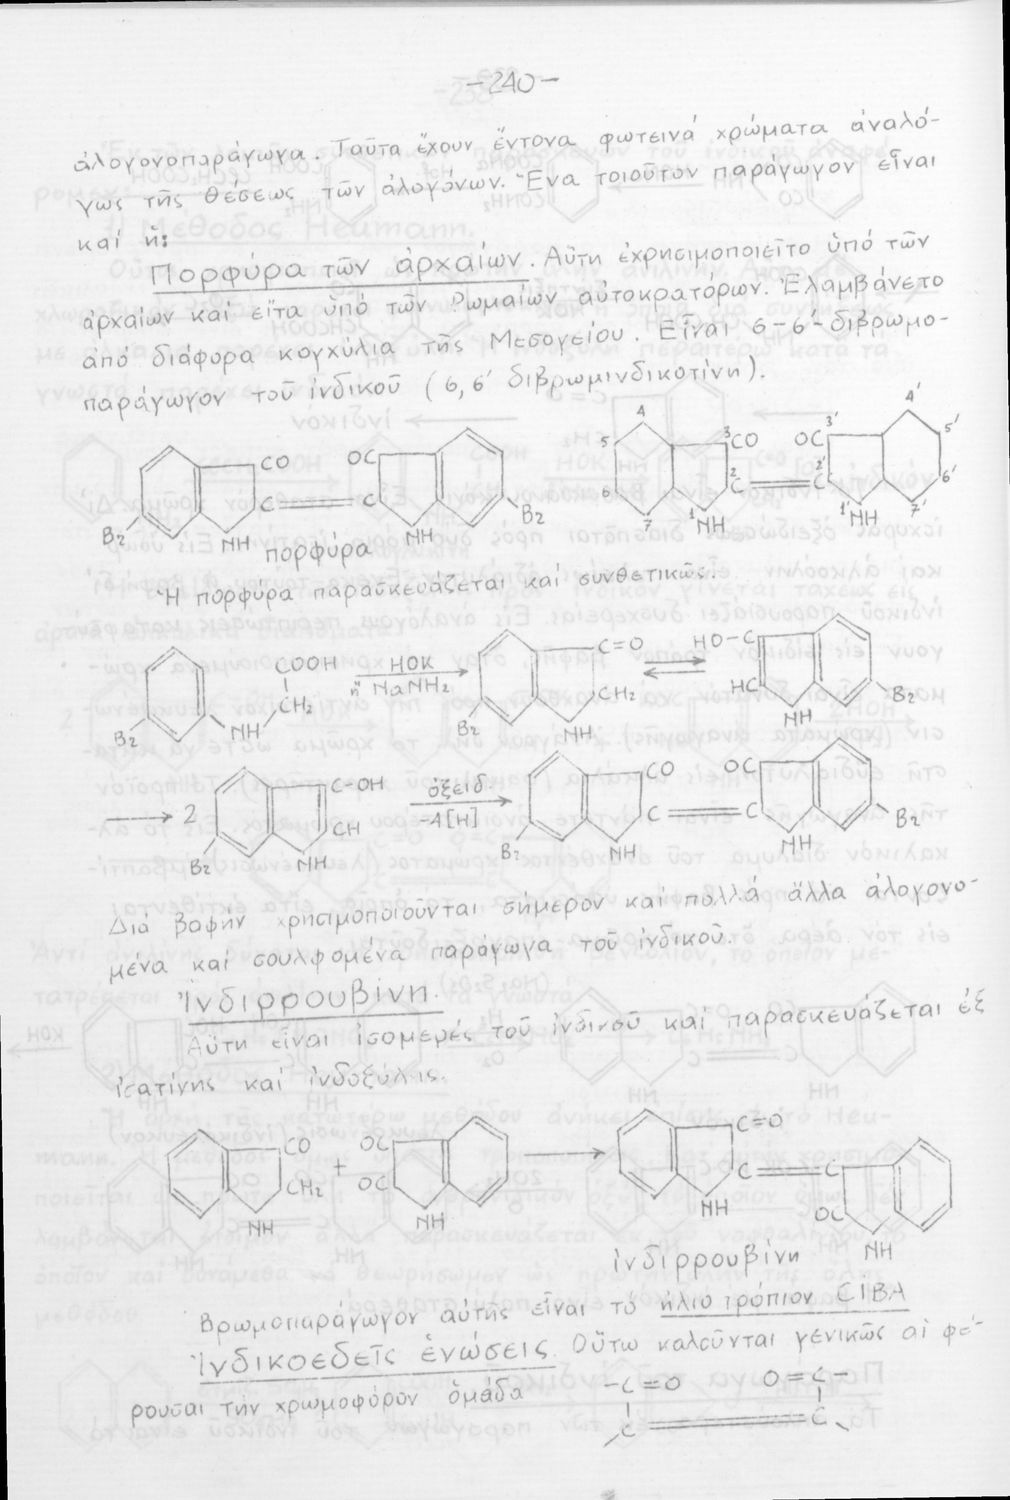 -240-
ἁλογονοπαράγωγα. Ταῦτα ἔχουν ἔντονα φωτεινά χρώματα ἀναλό-
γως τῆς θέσεως τῶν ἁλογόνων. Ἕνα τοιοῦτον παράγωγον εἶναι
καί ἡ:
Πορφύρα τῶν ἀρχαίων. Αὕτη ἐχρησιμοποιεῖτο ὑπό τῶν
ἀρχαίων καί εἶτα ὑπό τῶν Ρωμαίων αὐτοκρατόρων. Ἐλαμβάνετο
ἀπό διάφορα κογχύλια τῆς Μεσογείου. Εἶναι 6-6'-διβρωμο-
παράγωγον τοῦ ἰνδικοῦ (6,6' διβρωμινδικοτίνη).
4 4'
5 3 CO OC 3' 5'
CO OC
6 2 C C 2' 6'
C C
Br Br
7 1 NH 1' NH 7'
NH NH
πορφύρα
Ἡ πορφύρα παρασκευάζεται καί συνθετικῶς:
COOH HOK C=O HO-C
CH2 ἤ NaNH2 CH2 HC
Br NH Br NH NH Br
2 C-OH ὀξειδ. CO OC
CH -4[H] C C
Br NH Br NH NH Br
Διά βαφήν χρησιμοποιοῦνται σήμερον καί πολλά ἄλλα ἁλογονο-
μένα καί σουλφομένα παράγωγα τοῦ ἰνδικοῦ.
Ἰνδιρρουβίνη.
Αὕτη εἶναι ἰσομερές τοῦ ἰνδικοῦ καί παρασκευάζεται ἐξ
ἰσατίνης καί ἰνδοξύλης.
CO + OC C=O
CH2 OC C C
NH NH NH OC
NH
ἰνδιρρουβίνη
Βρωμοπαράγωγον αὐτῆς εἶναι τό ἡλιοτρόπιον CIBA
Ἰνδικοεδεῖς ἑνώσεις. Οὕτω καλοῦνται γενικῶς αἱ φέ-
ρουσαι τήν χρωμοφόρον ὁμάδα -C=O O=C-
C C